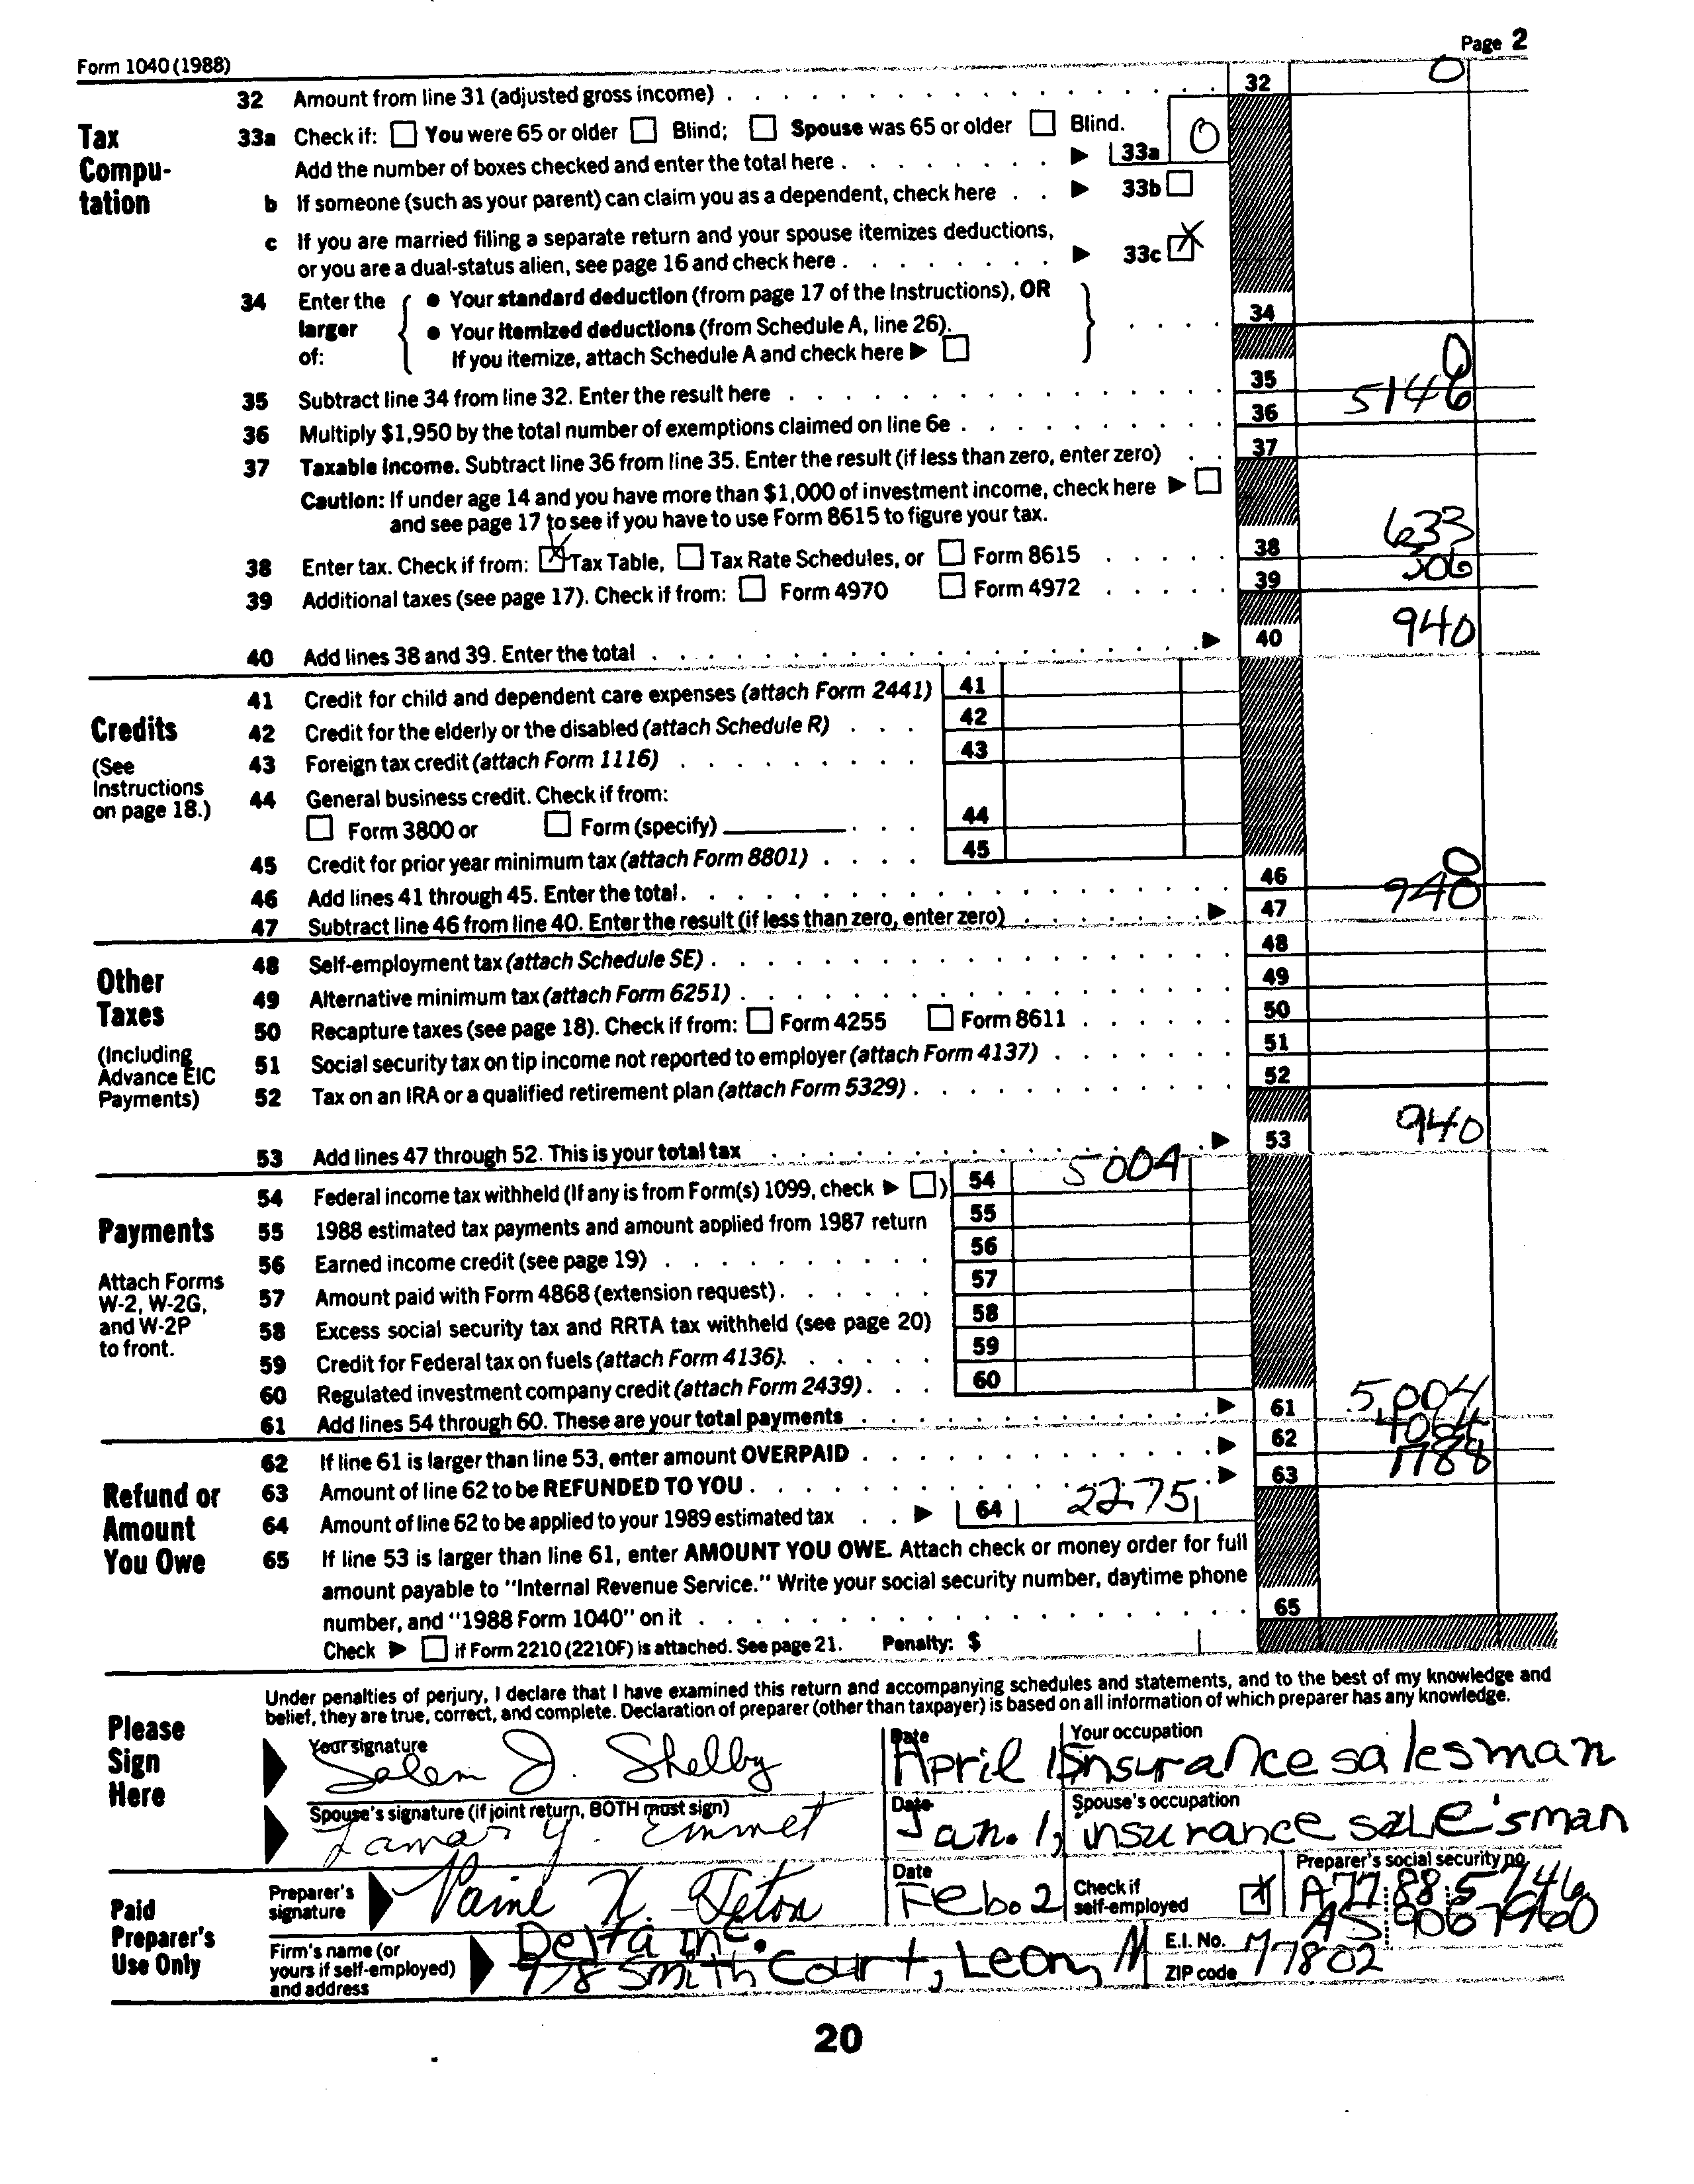 Form 1040 (1988) Page 2
32 Amount from line 31 (adjusted gross income) 32 0
Tax Compu-tation
33a Check if: You were 65 or older Blind; Spouse was 65 or older Blind.
Add the number of boxes checked and enter the total here 33a 0
b If someone (such as your parent) can claim you as a dependent, check here 33b
c If you are married filing a separate return and your spouse itemizes deductions,
or you are a dual-status alien, see page 16 and check here 33c X
34 Enter the larger of: { • Your standard deduction (from page 17 of the Instructions), OR
• Your itemized deductions (from Schedule A, line 26).
If you itemize, attach Schedule A and check here } 34
35 Subtract line 34 from line 32. Enter the result here 35 0
36 Multiply $1,950 by the total number of exemptions claimed on line 6e 36 5146
37 Taxable income. Subtract line 36 from line 35. Enter the result (if less than zero, enter zero) 37
Caution: If under age 14 and you have more than $1,000 of investment income, check here
and see page 17 to see if you have to use Form 8615 to figure your tax.
38 Enter tax. Check if from: X Tax Table, Tax Rate Schedules, or Form 8615 38 633
39 Additional taxes (see page 17). Check if from: Form 4970 Form 4972 39 306
40 Add lines 38 and 39. Enter the total 40 940
Credits
(See Instructions on page 18.)
41 Credit for child and dependent care expenses (attach Form 2441) 41
42 Credit for the elderly or the disabled (attach Schedule R) 42
43 Foreign tax credit (attach Form 1116) 43
44 General business credit. Check if from:
Form 3800 or Form (specify) 44
45 Credit for prior year minimum tax (attach Form 8801) 45
46 Add lines 41 through 45. Enter the total 46 0
47 Subtract line 46 from line 40. Enter the result (if less than zero, enter zero) 47 940
Other Taxes
(Including Advance EIC Payments)
48 Self-employment tax (attach Schedule SE) 48
49 Alternative minimum tax (attach Form 6251) 49
50 Recapture taxes (see page 18). Check if from: Form 4255 Form 8611 50
51 Social security tax on tip income not reported to employer (attach Form 4137) 51
52 Tax on an IRA or a qualified retirement plan (attach Form 5329) 52
53 Add lines 47 through 52. This is your total tax 53 940
Payments
Attach Forms W-2, W-2G, and W-2P to front.
54 Federal income tax withheld (If any is from Form(s) 1099, check ) 54 5004
55 1988 estimated tax payments and amount applied from 1987 return 55
56 Earned income credit (see page 19) 56
57 Amount paid with Form 4868 (extension request) 57
58 Excess social security tax and RRTA tax withheld (see page 20) 58
59 Credit for Federal tax on fuels (attach Form 4136) 59
60 Regulated investment company credit (attach Form 2439) 60
61 Add lines 54 through 60. These are your total payments 61 5,004
Refund or Amount You Owe
62 If line 61 is larger than line 53, enter amount OVERPAID 62 4064
63 Amount of line 62 to be REFUNDED TO YOU 63 1788
64 Amount of line 62 to be applied to your 1989 estimated tax 64 2275
65 If line 53 is larger than line 61, enter AMOUNT YOU OWE. Attach check or money order for full
amount payable to "Internal Revenue Service." Write your social security number, daytime phone
number, and "1988 Form 1040" on it 65
Check if Form 2210 (2210F) is attached. See page 21. Penalty: $
Please Sign Here
Under penalties of perjury, I declare that I have examined this return and accompanying schedules and statements, and to the best of my knowledge and
belief, they are true, correct, and complete. Declaration of preparer (other than taxpayer) is based on all information of which preparer has any knowledge.
Your signature Date Your occupation
Salem J. Shelby April 15 insurance salesman
Spouse's signature (if joint return, BOTH must sign) Date Spouse's occupation
Lamar Y. Emmet Jan. 1, insurance salesman
Paid Preparer's Use Only
Preparer's signature Paine X. Teton Date Feb. 2 Check if self-employed X Preparer's social security no. A77 88 5746
Firm's name (or yours if self-employed) and address Delta Inc. E.I. No. AS 9067960
978 Smith Court, Leon, ZIP code 77802
20